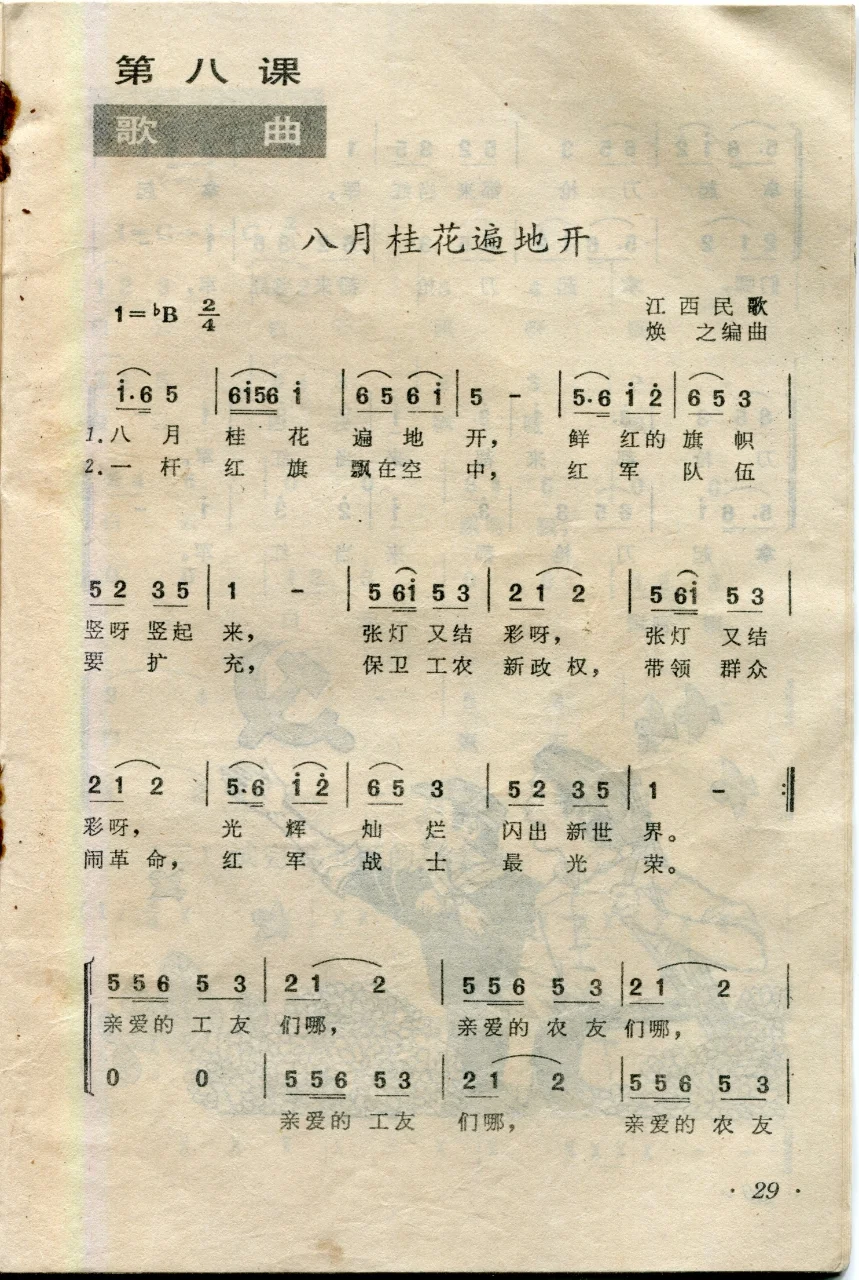 第八课
歌曲
八月桂花遍地开
1=♭B 2/4
江西民歌
焕之编曲
i·6 5 | 6i56 i | 65 6i | 5 - | 5·6 i2 | 65 3 |
1.八月桂花遍地开，鲜红的旗帜
2.一杆红旗飘在空中，红军队伍
52 35 | 1 - | 5 6i 53 | 21 2 | 5 6i 53 |
竖呀竖起来，张灯又结彩呀，张灯又结
要扩充，保卫工农新政权，带领群众
21 2 | 5·6 i2 | 65 3 | 52 35 | 1 - :‖
彩呀，光辉灿烂闪出新世界。
闹革命，红军战士最光荣。
556 53 | 21 2 | 556 53 | 21 2 |
亲爱的工友们哪，亲爱的农友们哪，
0 0 | 556 53 | 21 2 | 556 53 |
亲爱的工友们哪，亲爱的农友
·29·